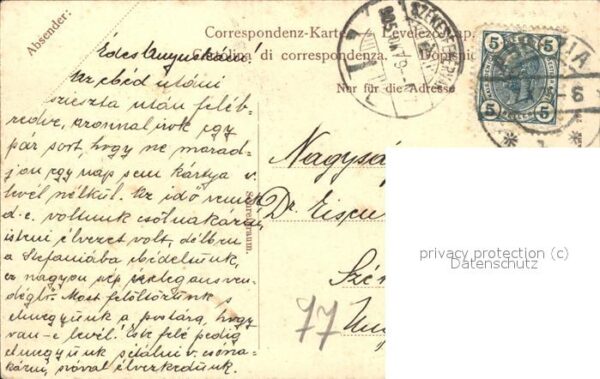 Absender:
Correspondenz-Karte. Levelező-lap.
Cartolina di corrispondenza. Dopisnic
Nur für die Adresse
SZÉKESFEHÉR
5 5
5 5
Édes Anyuskám!
Az ebéd utáni
szieszta után feléb-
redve, azonnal irok egy
pár sort, hogy ne marad-
jon egy nap sem kártya v.
levél nélkül. Az idő remek
d. e. voltunk csólnakázni,
isteni élvezet volt, délben
a Stefaniában ebédeltünk,
ez nagyon szép, elegáns ven-
déglő. Most felöltözünk s
elmegyünk a postára, hogy
van-e levél! Este felé pedig
elmegyünk sétálni v. csóna-
kázni, szóval élvezkedünk.
Nagysá
Dr. Eisen
Szé
Un
77
privacy protection (c)
Datenschutz